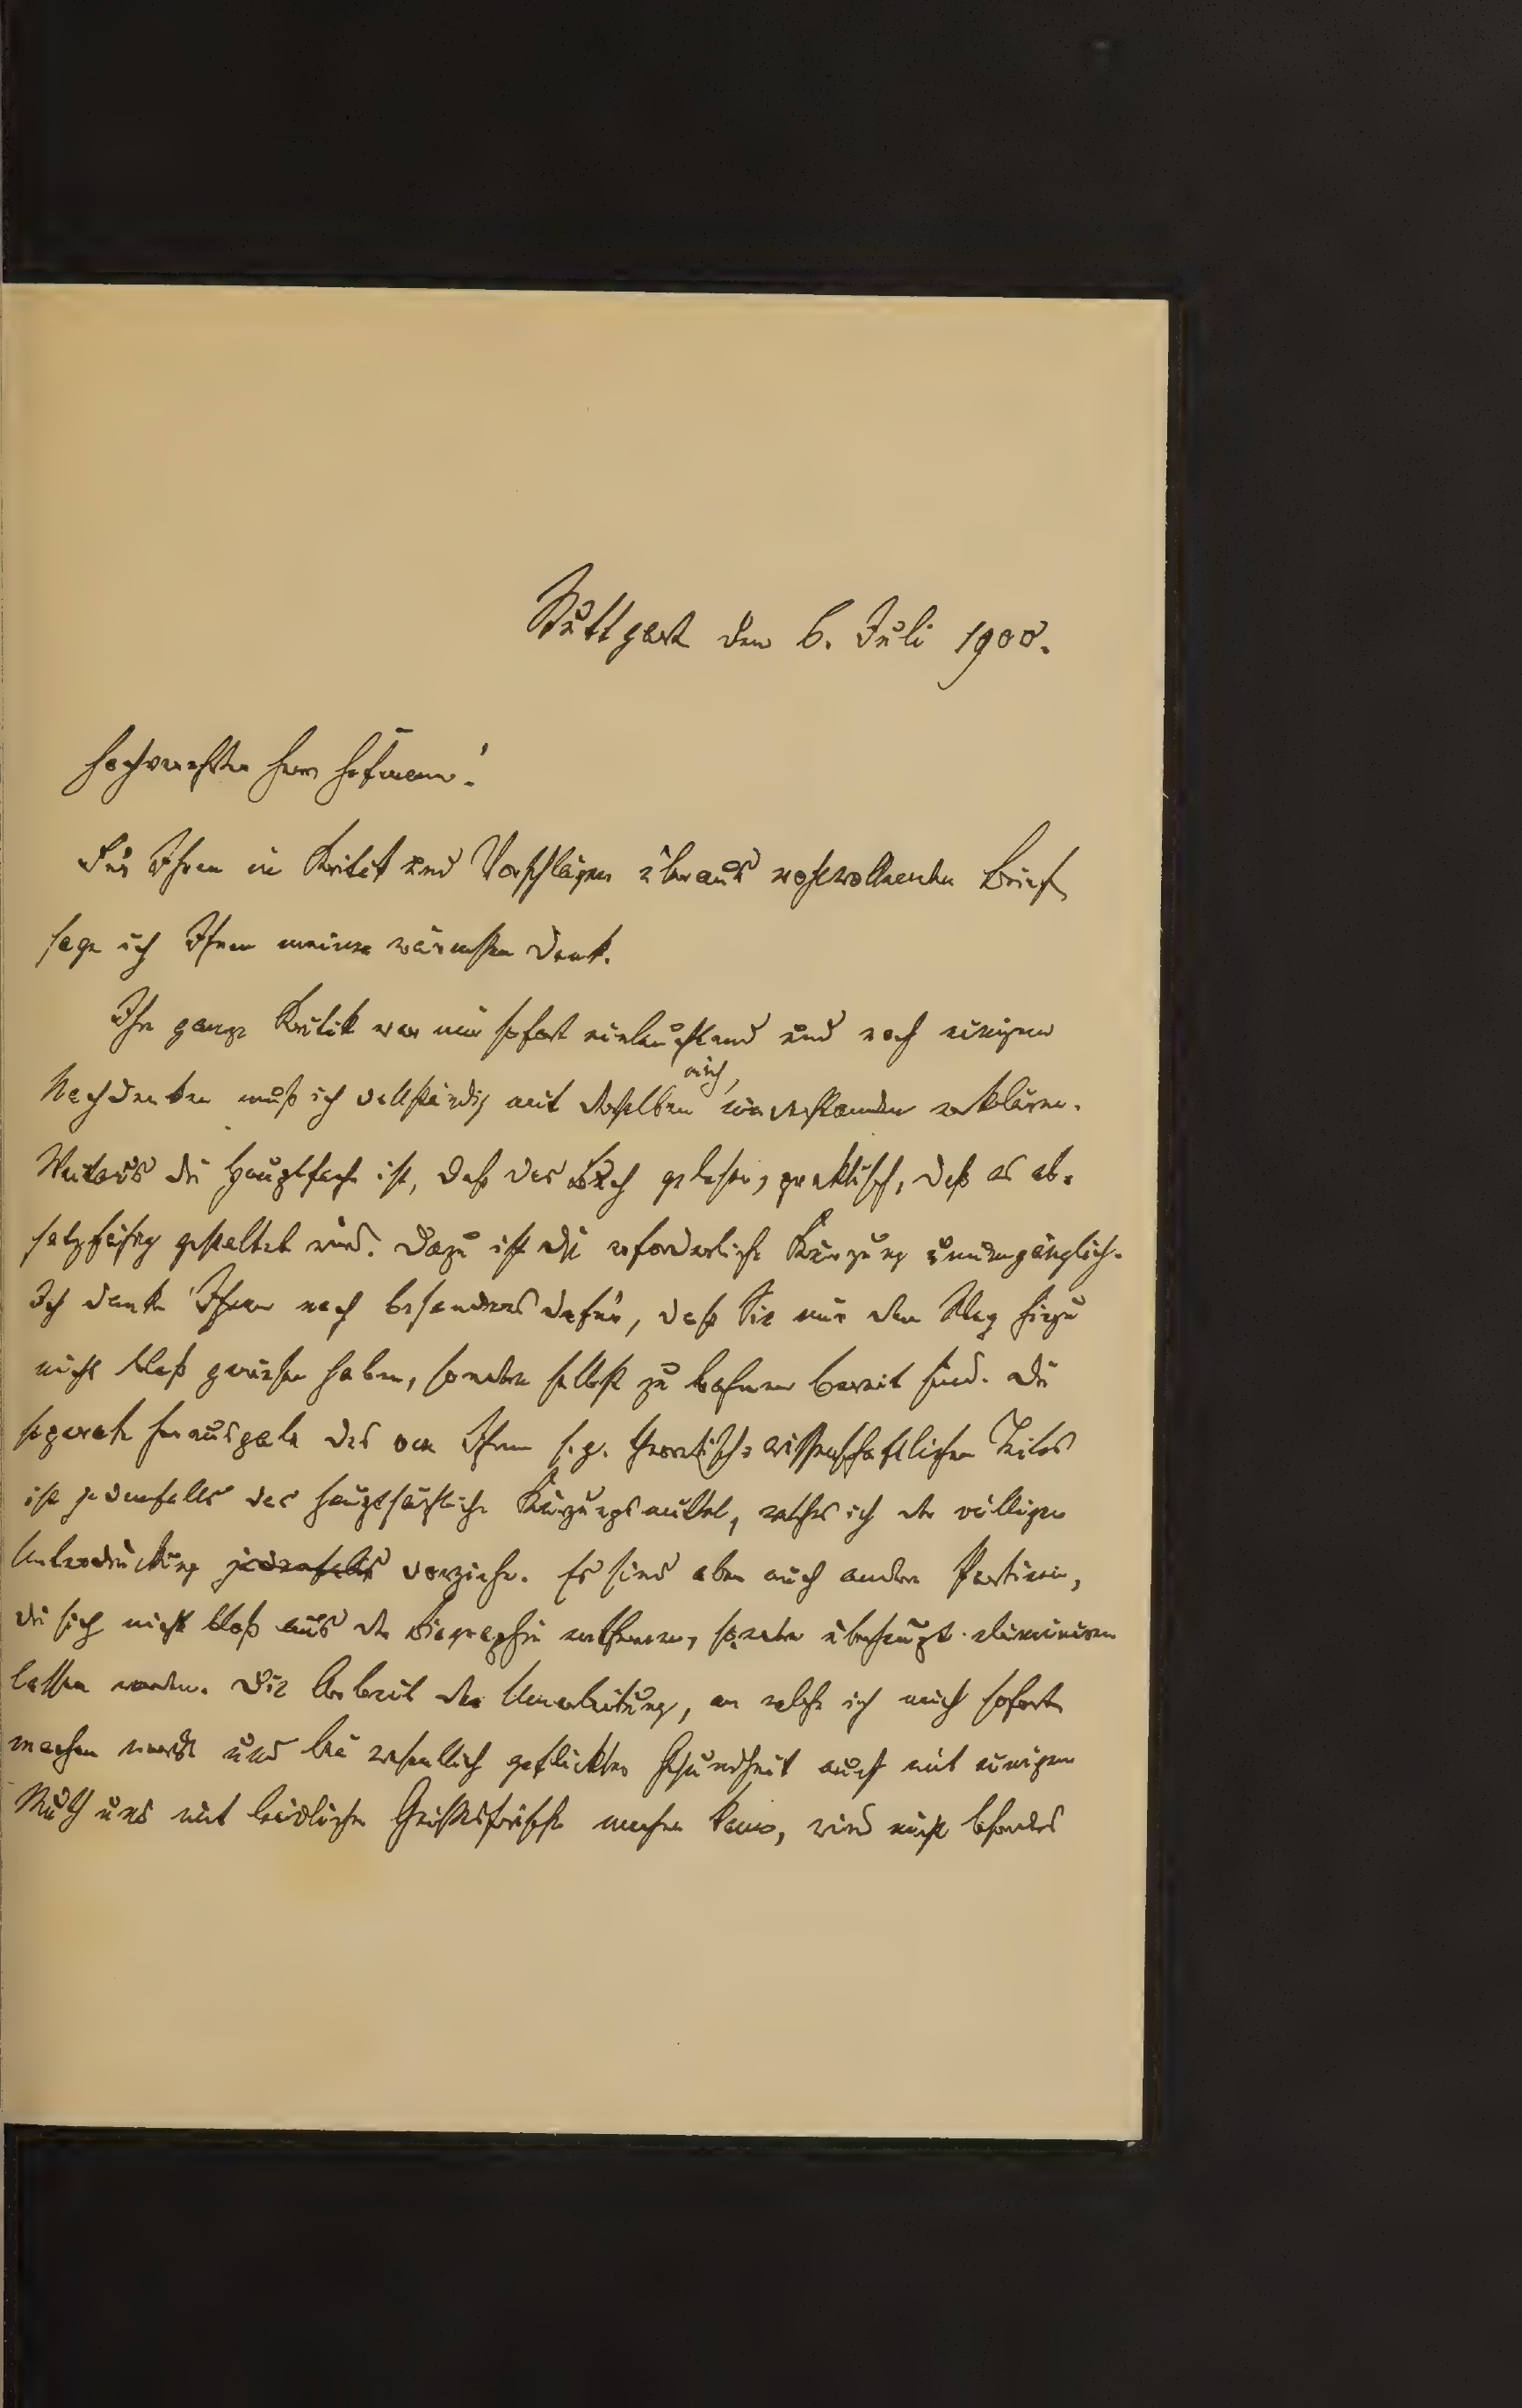 Stuttgart den 6. Juli 1900.
Hochverehrter Herr Hofmann!
Für Ihren in Kritik und Vorschlägen überaus wohlwollenden Brief
sage ich Ihnen meinen wärmsten Dank.
Ihre ganze Kritik war mir sofort einleuchtend und nach einigem
mich,
Nachdenken muß ich vollständig mit derselben einverstanden erklären.
Weitaus die Hauptsache ist, daß das Buch gelesen, praktisch, daß es ab-
satzfähig gestaltet wird. Dazu ist die erforderliche Kürzung unumgänglich.
Ich danke Ihnen noch besonders dafür, daß Sie mir den Weg hiezu
nicht bloß gewiesen haben, sondern selbst zu bahnen bereit sind. Die
separate Herausgabe des von Ihnen s. g. theoretisch-wissenschaftlichen Teiles
ist jedenfalls das hauptsächliche Kürzungsmittel, welches ich der völligen
Unterdrückung jedenfalls vorziehe. Es sind aber auch andere Partieen,
die sich nicht bloß aus der Biographie entfernen, sondern überhaupt eliminieren
lassen werden. Die Arbeit der Umarbeitung, an welche ich mich sofort
machen werde und bei wesentlich geflickter Gesundheit auch mit einigem
Muth und mit leidlicher Geistesfrische machen kann, wird nicht besonders